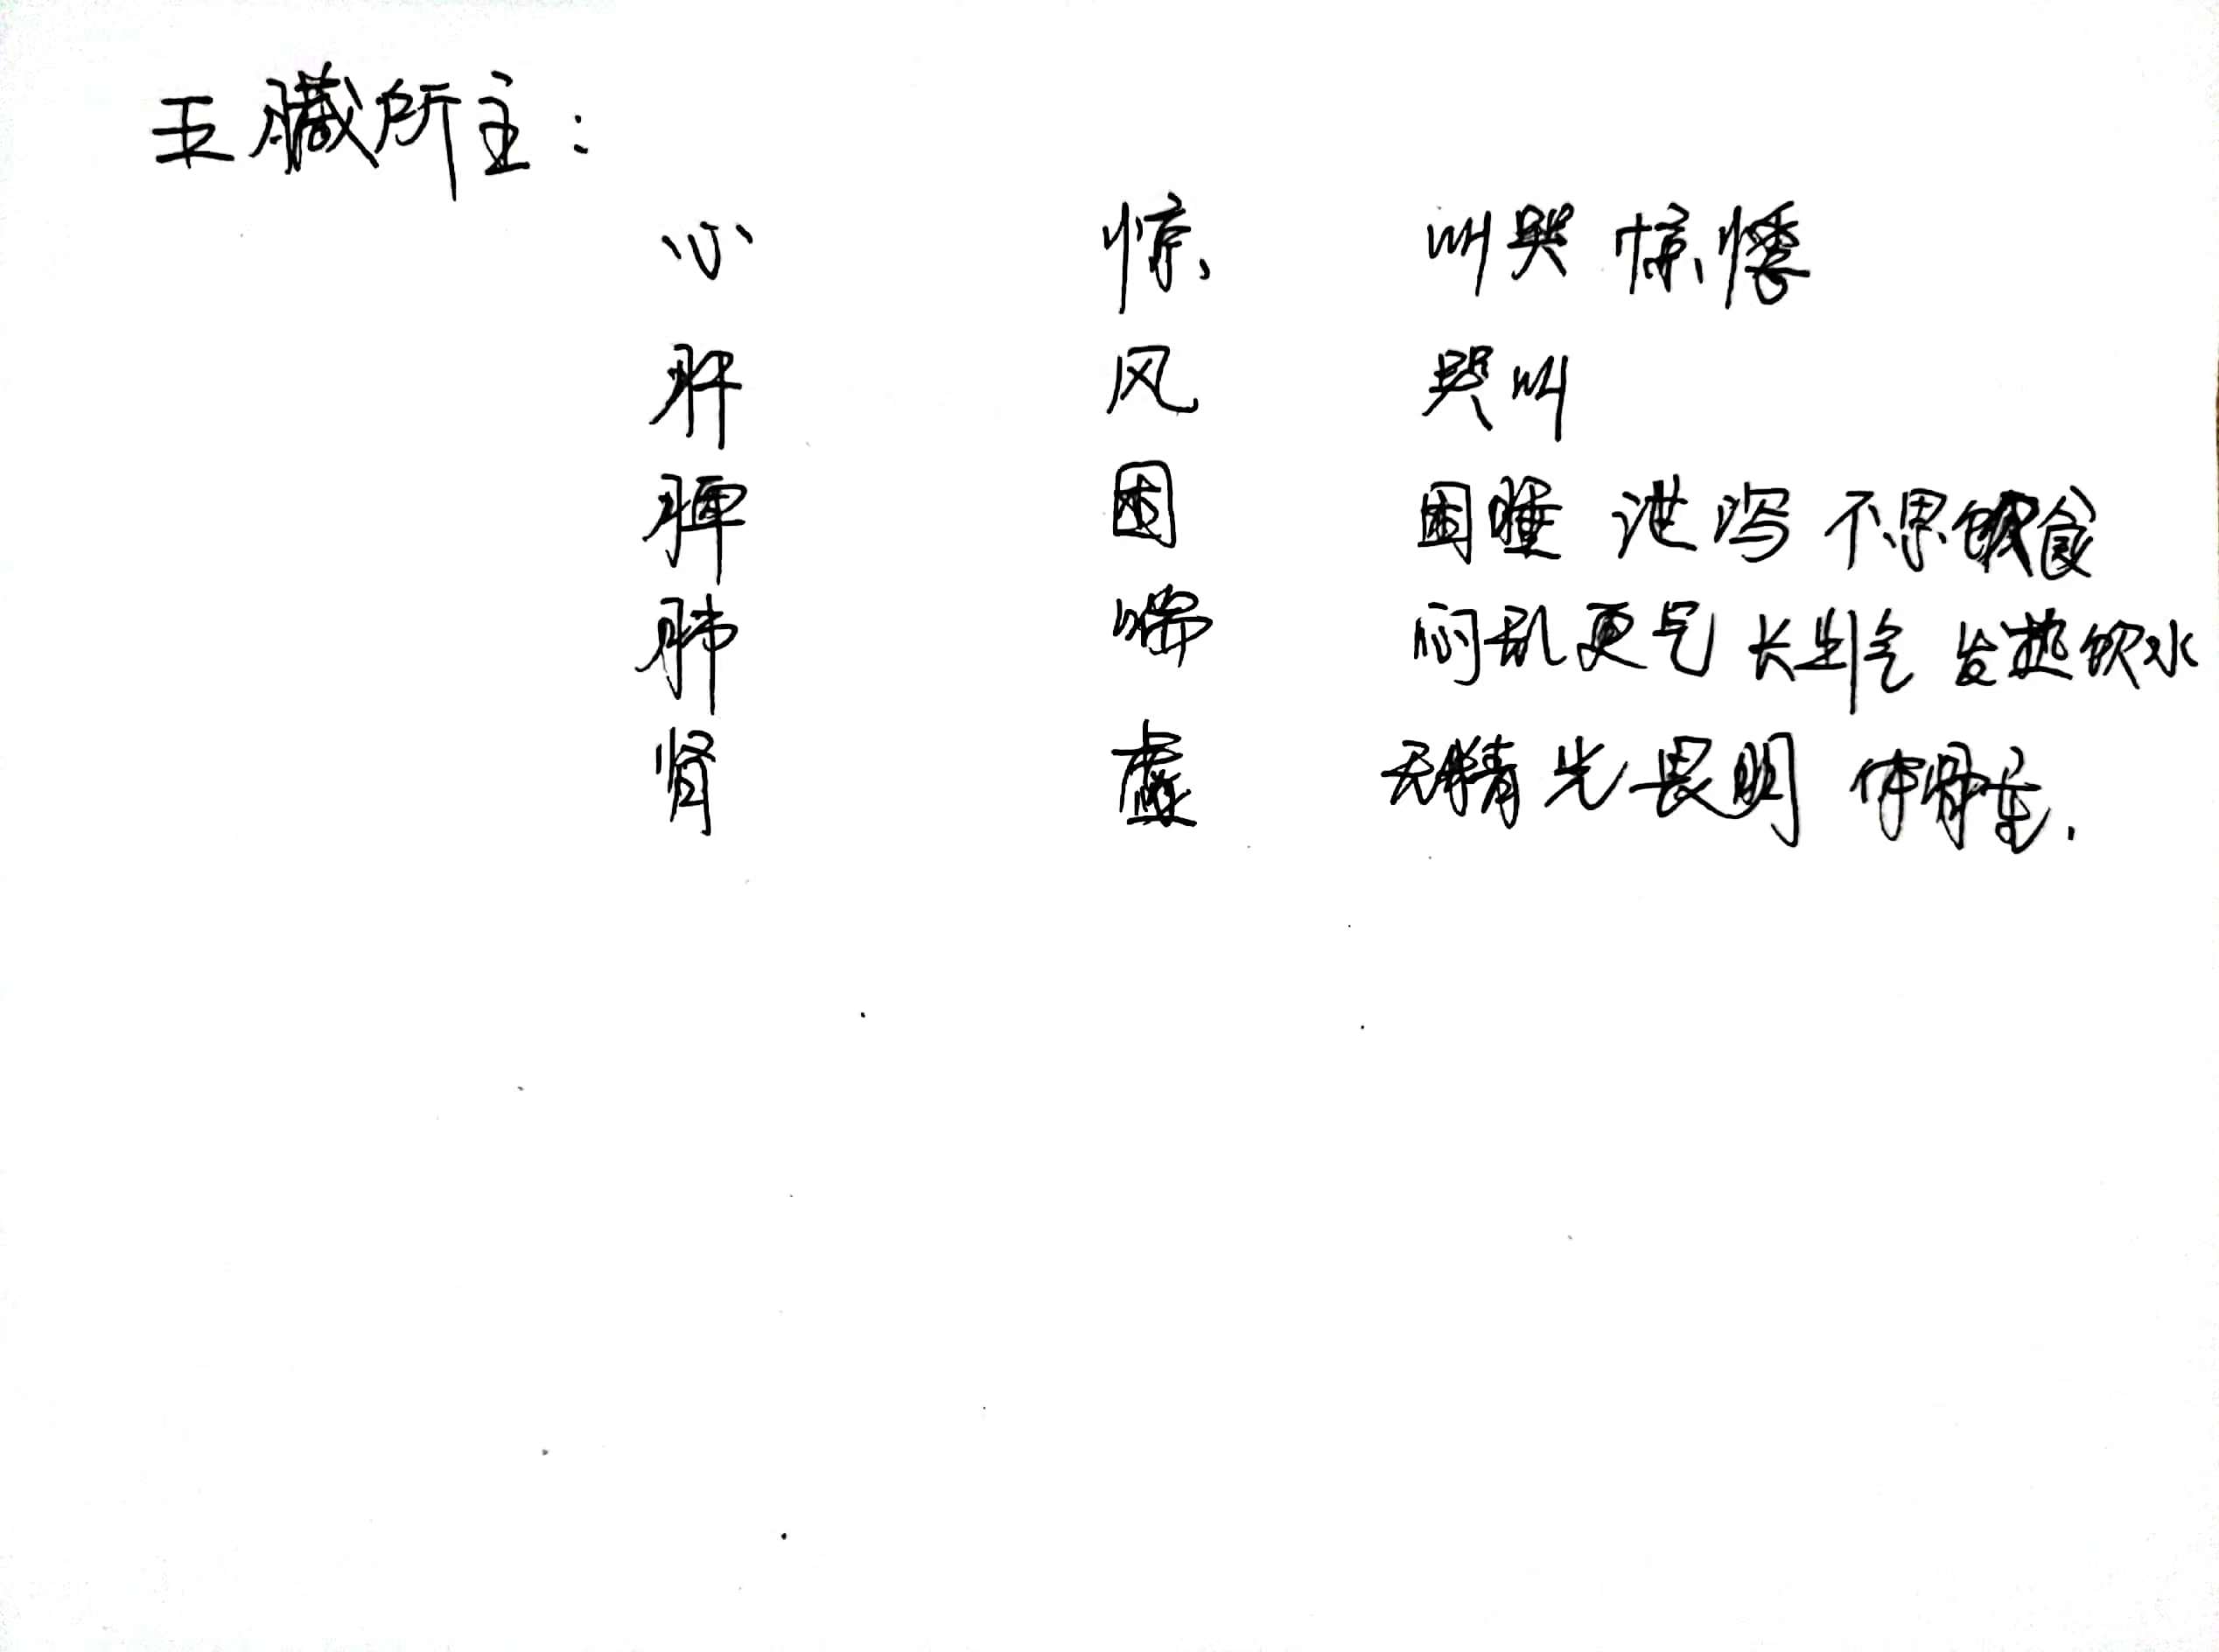 五臓所主：
心 惊 叫哭 惊悸
肝 风 哭叫
脾 困 困睡 泄泻 不思饮食
肺 喘 闷乱更气 长出气 发热饮水
肾 虚 无精光畏明 体骨重.